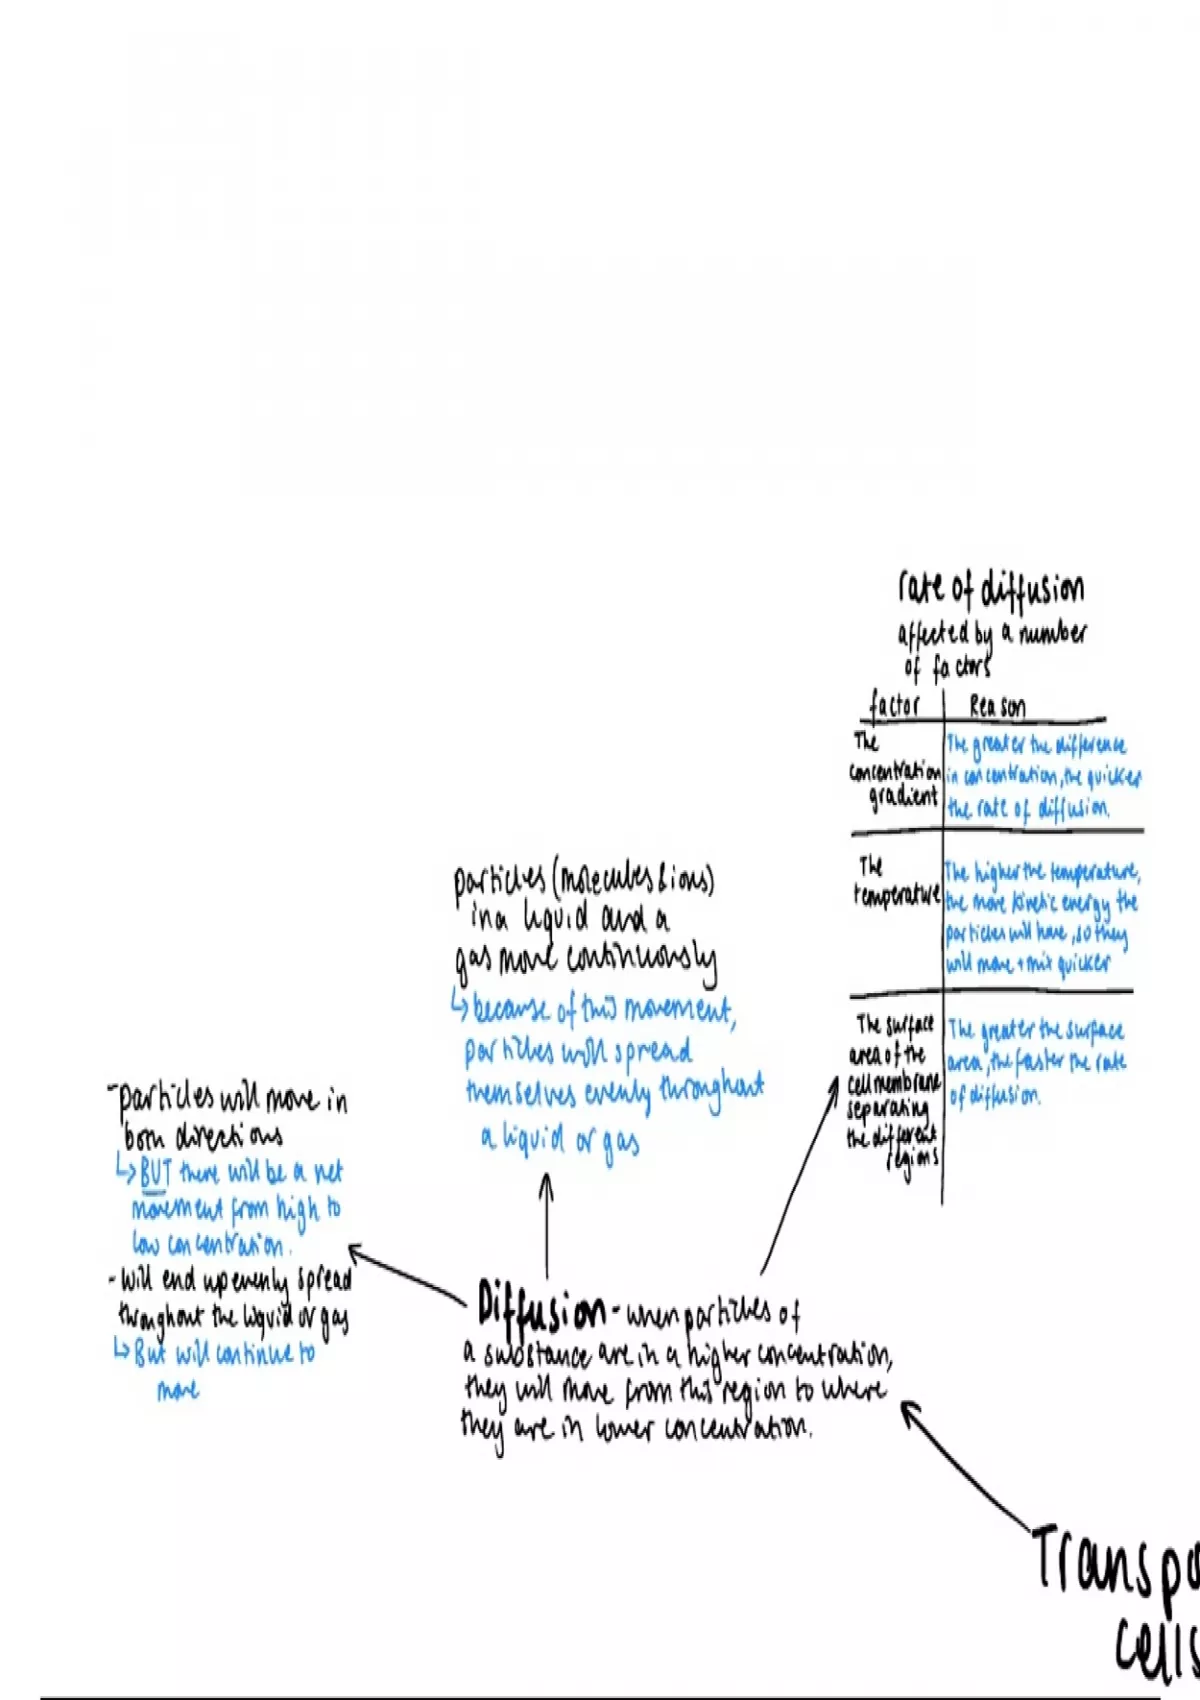 rate of diffusion
affected by a number
of factors
factor Reason
The
concentration
gradient
The greater the difference
in concentration, the quicker
the rate of diffusion.
The
temperature
The higher the temperature,
the more kinetic energy the
particles will have, so they
will move + mix quicker
The surface
area of the
cell membrane
separating
the different
regions
The greater the surface
area, the faster the rate
of diffusion.
particles (molecules & ions)
in a liquid and a
gas move continuously
↳ because of this movement,
particles will spread
themselves evenly throughout
a liquid or gas
- particles will move in
both directions
↳ BUT there will be a net
movement from high to
low concentration.
- will end up evenly spread
throughout the liquid or gas
↳ But will continue to
move
Diffusion - when particles of
a substance are in a higher concentration,
they will move from this region to where
they are in lower concentration.
Transpo
cells